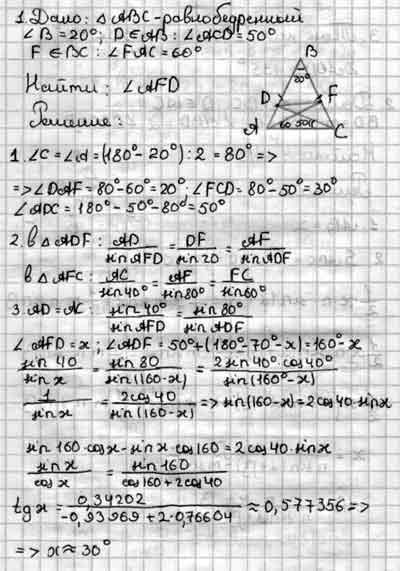 1. Дано: △ABC - равнобедренный
∠B = 20°; D∈AB: ∠ACD = 50°
F ∈ BC: ∠FAC = 60°
Найти: ∠AFD
Решение:
B
20°
D
F
A
60
50
C
1. ∠C = ∠A = (180° - 20°) : 2 = 80° =>
=> ∠DAF = 80° - 60° = 20°; ∠FCD = 80° - 50° = 30°
∠ADC = 180° - 50° - 80° = 50°
2. в △ADF: AD/sin AFD = DF/sin 20 = AF/sin ADF
в △AFC: AC/sin 40° = AF/sin 80° = FC/sin 60°
3. AD = AC: sin 40°/sin AFD = sin 80°/sin ADF
∠AFD = x; ∠ADF = 50° + (180° - 70° - x) = 160° - x
sin 40/sin x = sin 80/sin(160-x) = 2 sin 40° · cos 40°/sin(160° - x)
1/sin x = 2cos 40/sin(160-x) => sin(160-x) = 2cos 40 · sin x
sin 160 · cos x - sin x · cos 160 = 2 cos 40 · sin x
sin x/cos x = sin 160/cos 160 + 2 cos 40
tg x = 0,34202/-0,93969 + 2·0,76604 ≈ 0,577356 =>
=> x ≈ 30°